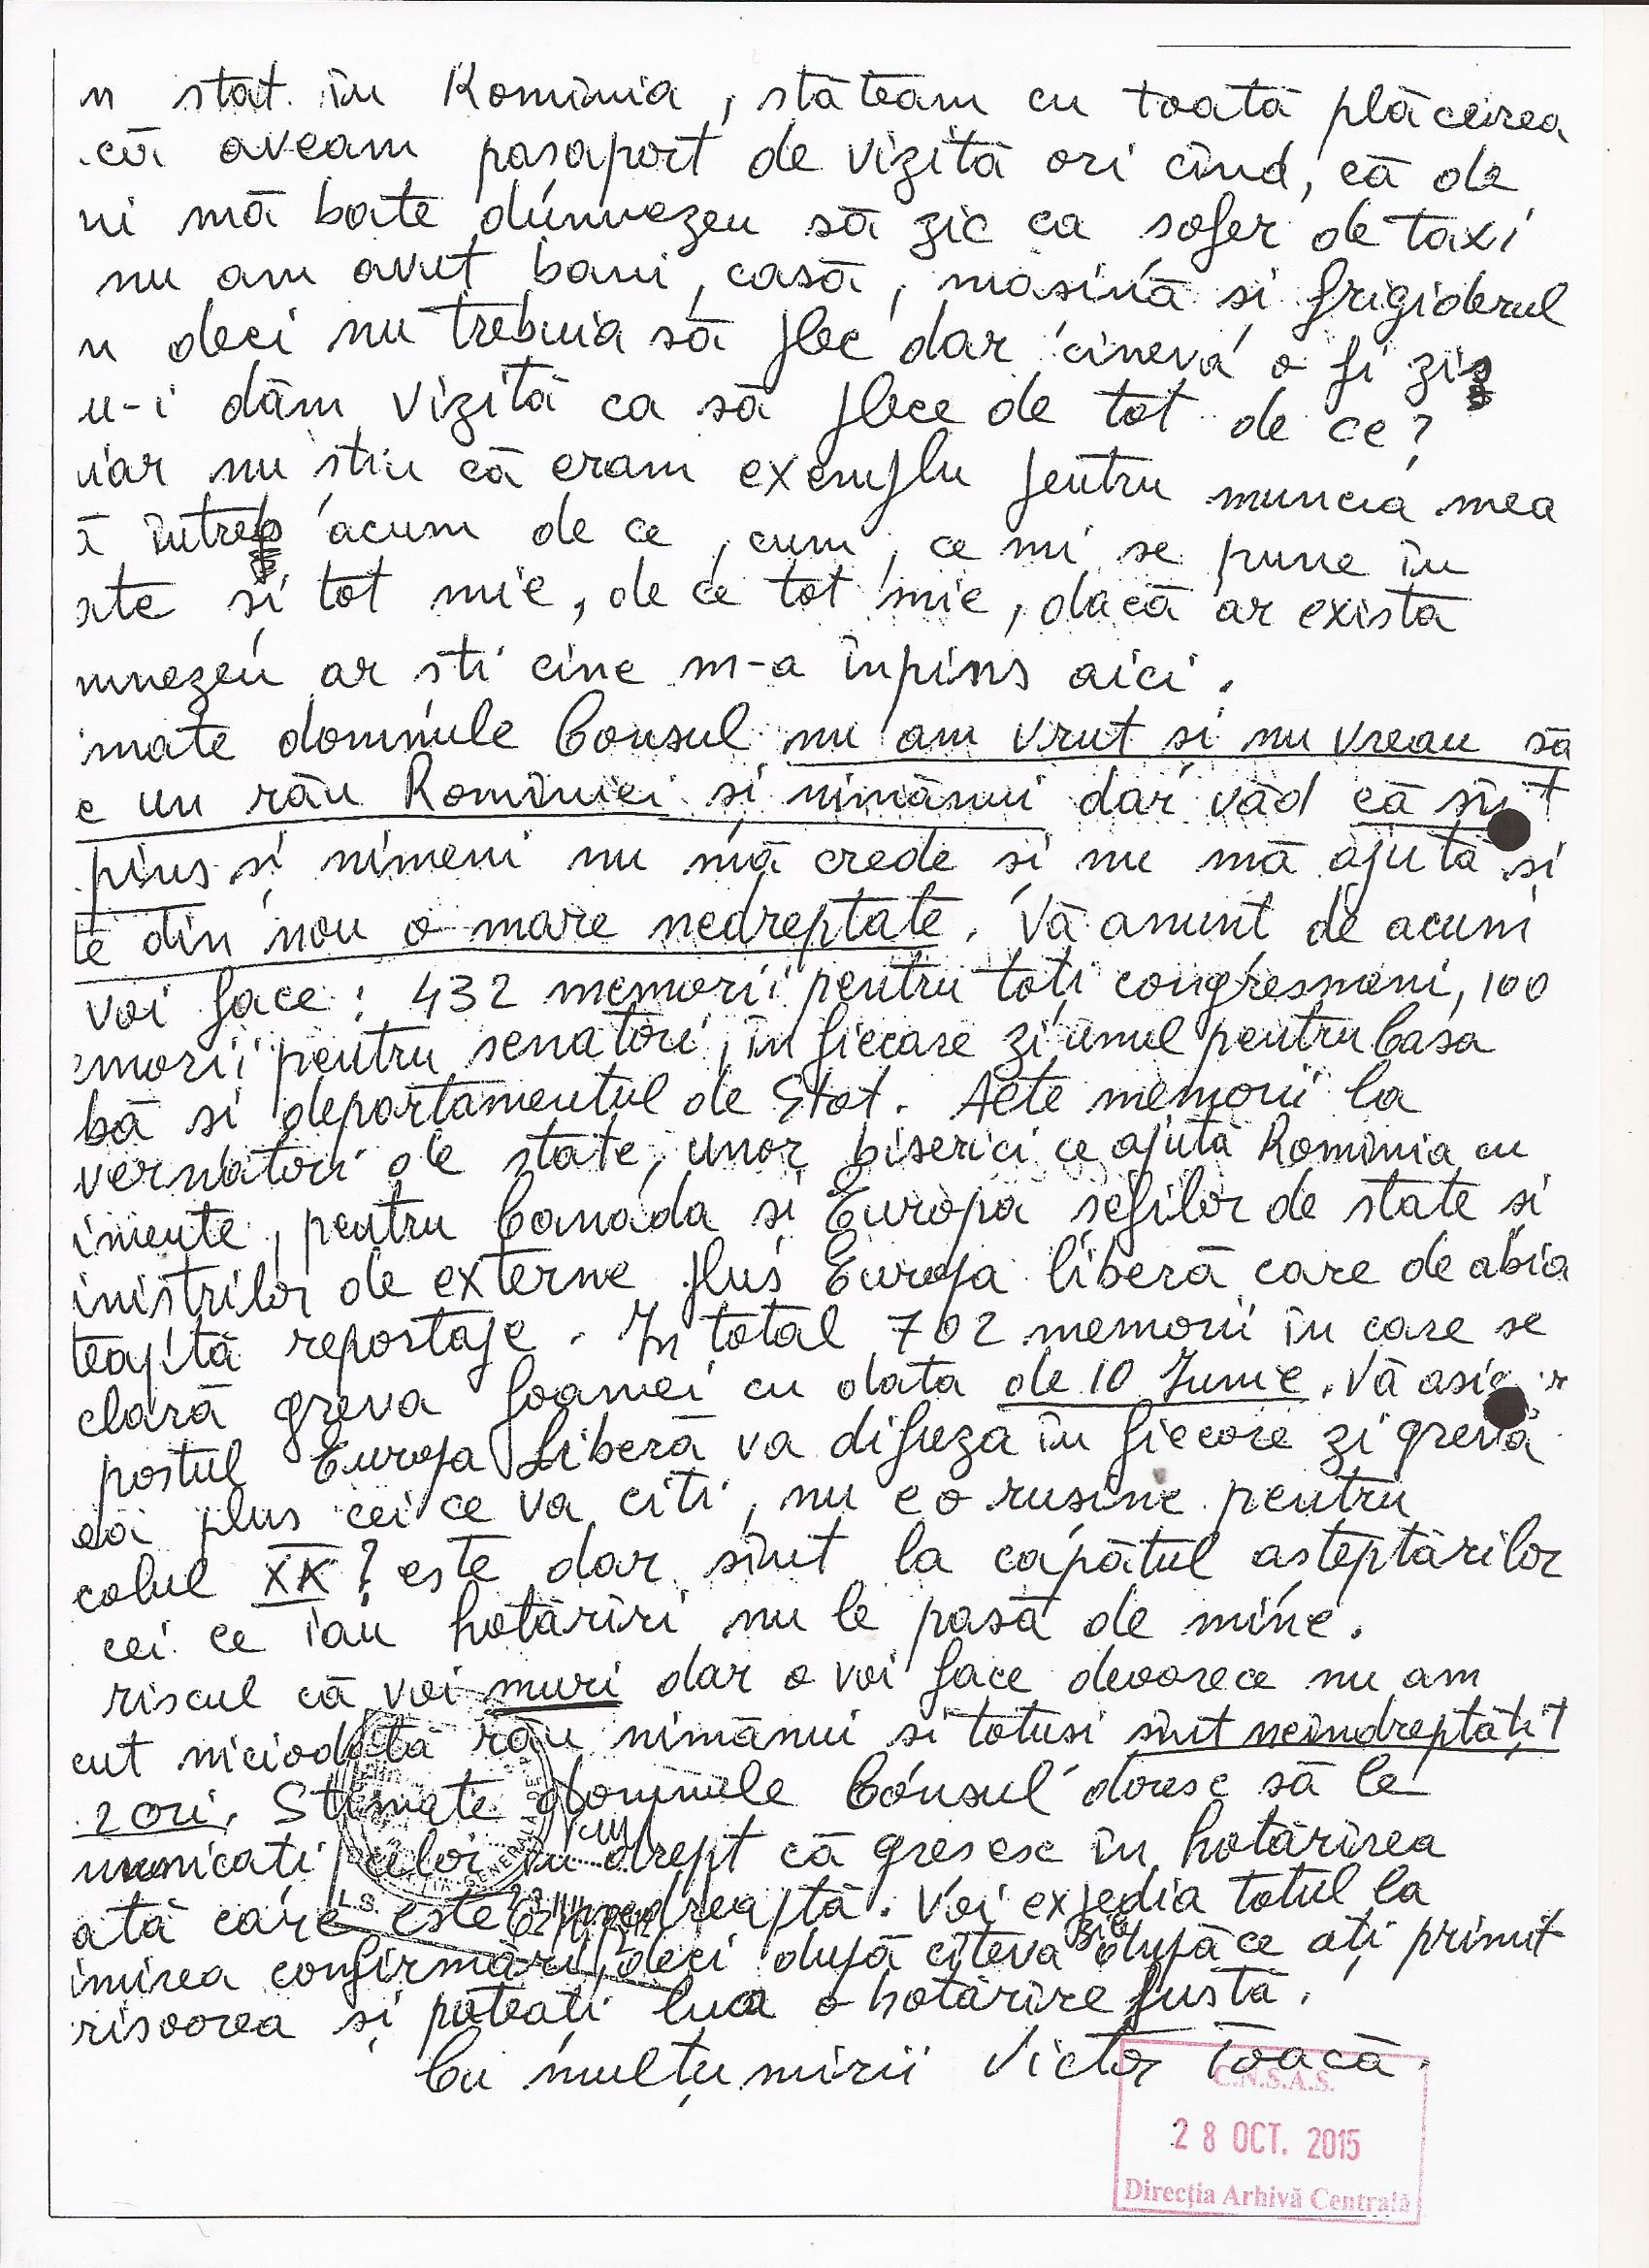 n stat în Romînia, stăteam cu toată plăceirea
că aveam pasaport de vizită ori cînd, că de
ni mă bate dumnezeu să zic ca sofer de taxi
nu am avut bani, casă, masină si frigiderul
n deci nu trebuia să plec dar cineva o fi zis
u-i dăm vizită ca să plece de tot de ce?
iar nu stiu că eram exemplu pentru muncia mea
ă întreb acum de ce, cum, ce mi se pune în
ate si tot mie, de ce tot mie, dacă ar exista
mnezeu ar sti cine m-a înpins aici.
imate domnule Consul nu am vrut si nu vreau să
c un rău Romîniei si nimănui dar văd că sînt
pins si nimeni nu mă crede si nu mă ajută si
te din nou o mare nedreptate. Vă anunt de acum
voi face: 432 memorii pentru toti congresmeni, 100
emorii pentru senatori, în fiecare zi unul pentru Casa
bă si departamentul de Stat. Alte memorii la
vernători de state, unor biserici ce ajută Romînia cu
imente, pentru Canada si Europa sefilor de state si
inistrilor de externe plus Europa liberă care de abia
teaptă reportaje. In total 702 memorii în care se
clară greva foamei cu data de 10 Iunie. Vă asigur
postul Europa Liberă va difuza în fiecare zi greva
ea plus cei ce va citi, nu e o rusine pentru
colul XX? este dar sînt la capătul asteptărilor
cei ce iau hotărîri nu le pasă de mine.
riscul că voi muri dar o voi face deoarece nu am
cut niciodată rău nimănui si totusi sînt neîndreptățit
2 ori. Stimate domnule Consul doresc să le
municati celor în drept că gresesc în hotărîrea
ată care este nedreaptă. Voi expedia totul la
imirea confirmării, deci după cîteva zile după ce ați primit
risoarea și puteați lua o hotărîre justă.
Cu mulțumirii Victor Toacă.
L.S.
C.N.S.A.S.
28 OCT. 2015
Direcția Arhivă Centrală